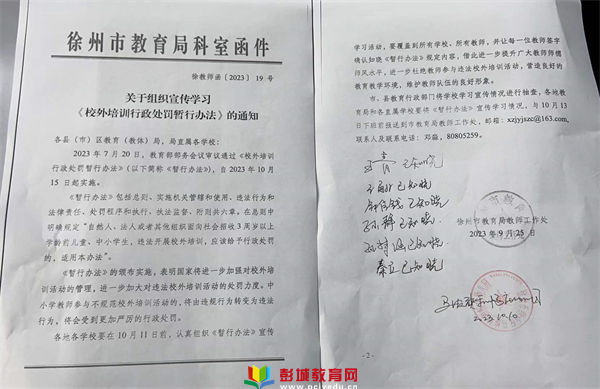 徐州市教育局科室函件
徐教师函〔2023〕19号
关于组织宣传学习
《校外培训行政处罚暂行办法》的通知
各县（市）区教育（教体）局，局直属各学校：
2023年7月20日，教育部部务会议审议通过《校外培训
行政处罚暂行办法》（以下简称《暂行办法》），自2023年10月
15日起实施。
《暂行办法》包括总则、实施机关管辖和使用、违法行为和
法律责任、处罚程序和执行、执法监督、附则共六章。在总则中
明确规定“自然人、法人或者其他组织面向社会招收3周岁以上
学龄前儿童、中小学生，违法开展校外培训，应该给予行政处罚
的，适用本办法”。
《暂行办法》的颁布实施，表明国家将进一步加强对校外培
训活动的管理，进一步加大对违法校外培训活动的处罚力度。中
小学教师参与不规范校外培训活动的，将由违规行为转变为违法
行为，将会受到更加严厉的行政处罚。
各地各学校要在10月11日前，认真组织《暂行办法》宣传
学习活动，要覆盖到所有学校、所有教师，并让每一位教师签字
确认知晓《暂行办法》规定内容，借此进一步提升广大教师师德
师风水平，进一步杜绝教师参与违法校外培训活动，营造良好的
教育教学环境，维护教师队伍的良好形象。
市、县教育行政部门将学校学习宣传情况进行抽查，各地教
育局和各直属学校要将《暂行办法》宣传学习情况，与10月13
日下班前报送到市教育局教师工作处，邮箱：xzjyjszc@163.com，
联系人及联系电话：邓淼，80805259。
已知晓
已知晓
已知晓
已知晓
已知晓
秦立已知晓
徐州市教育局教师工作处
2023年9月25日
2023.10.10
- 2 -
彭城教育网
www.pcjyedu.com